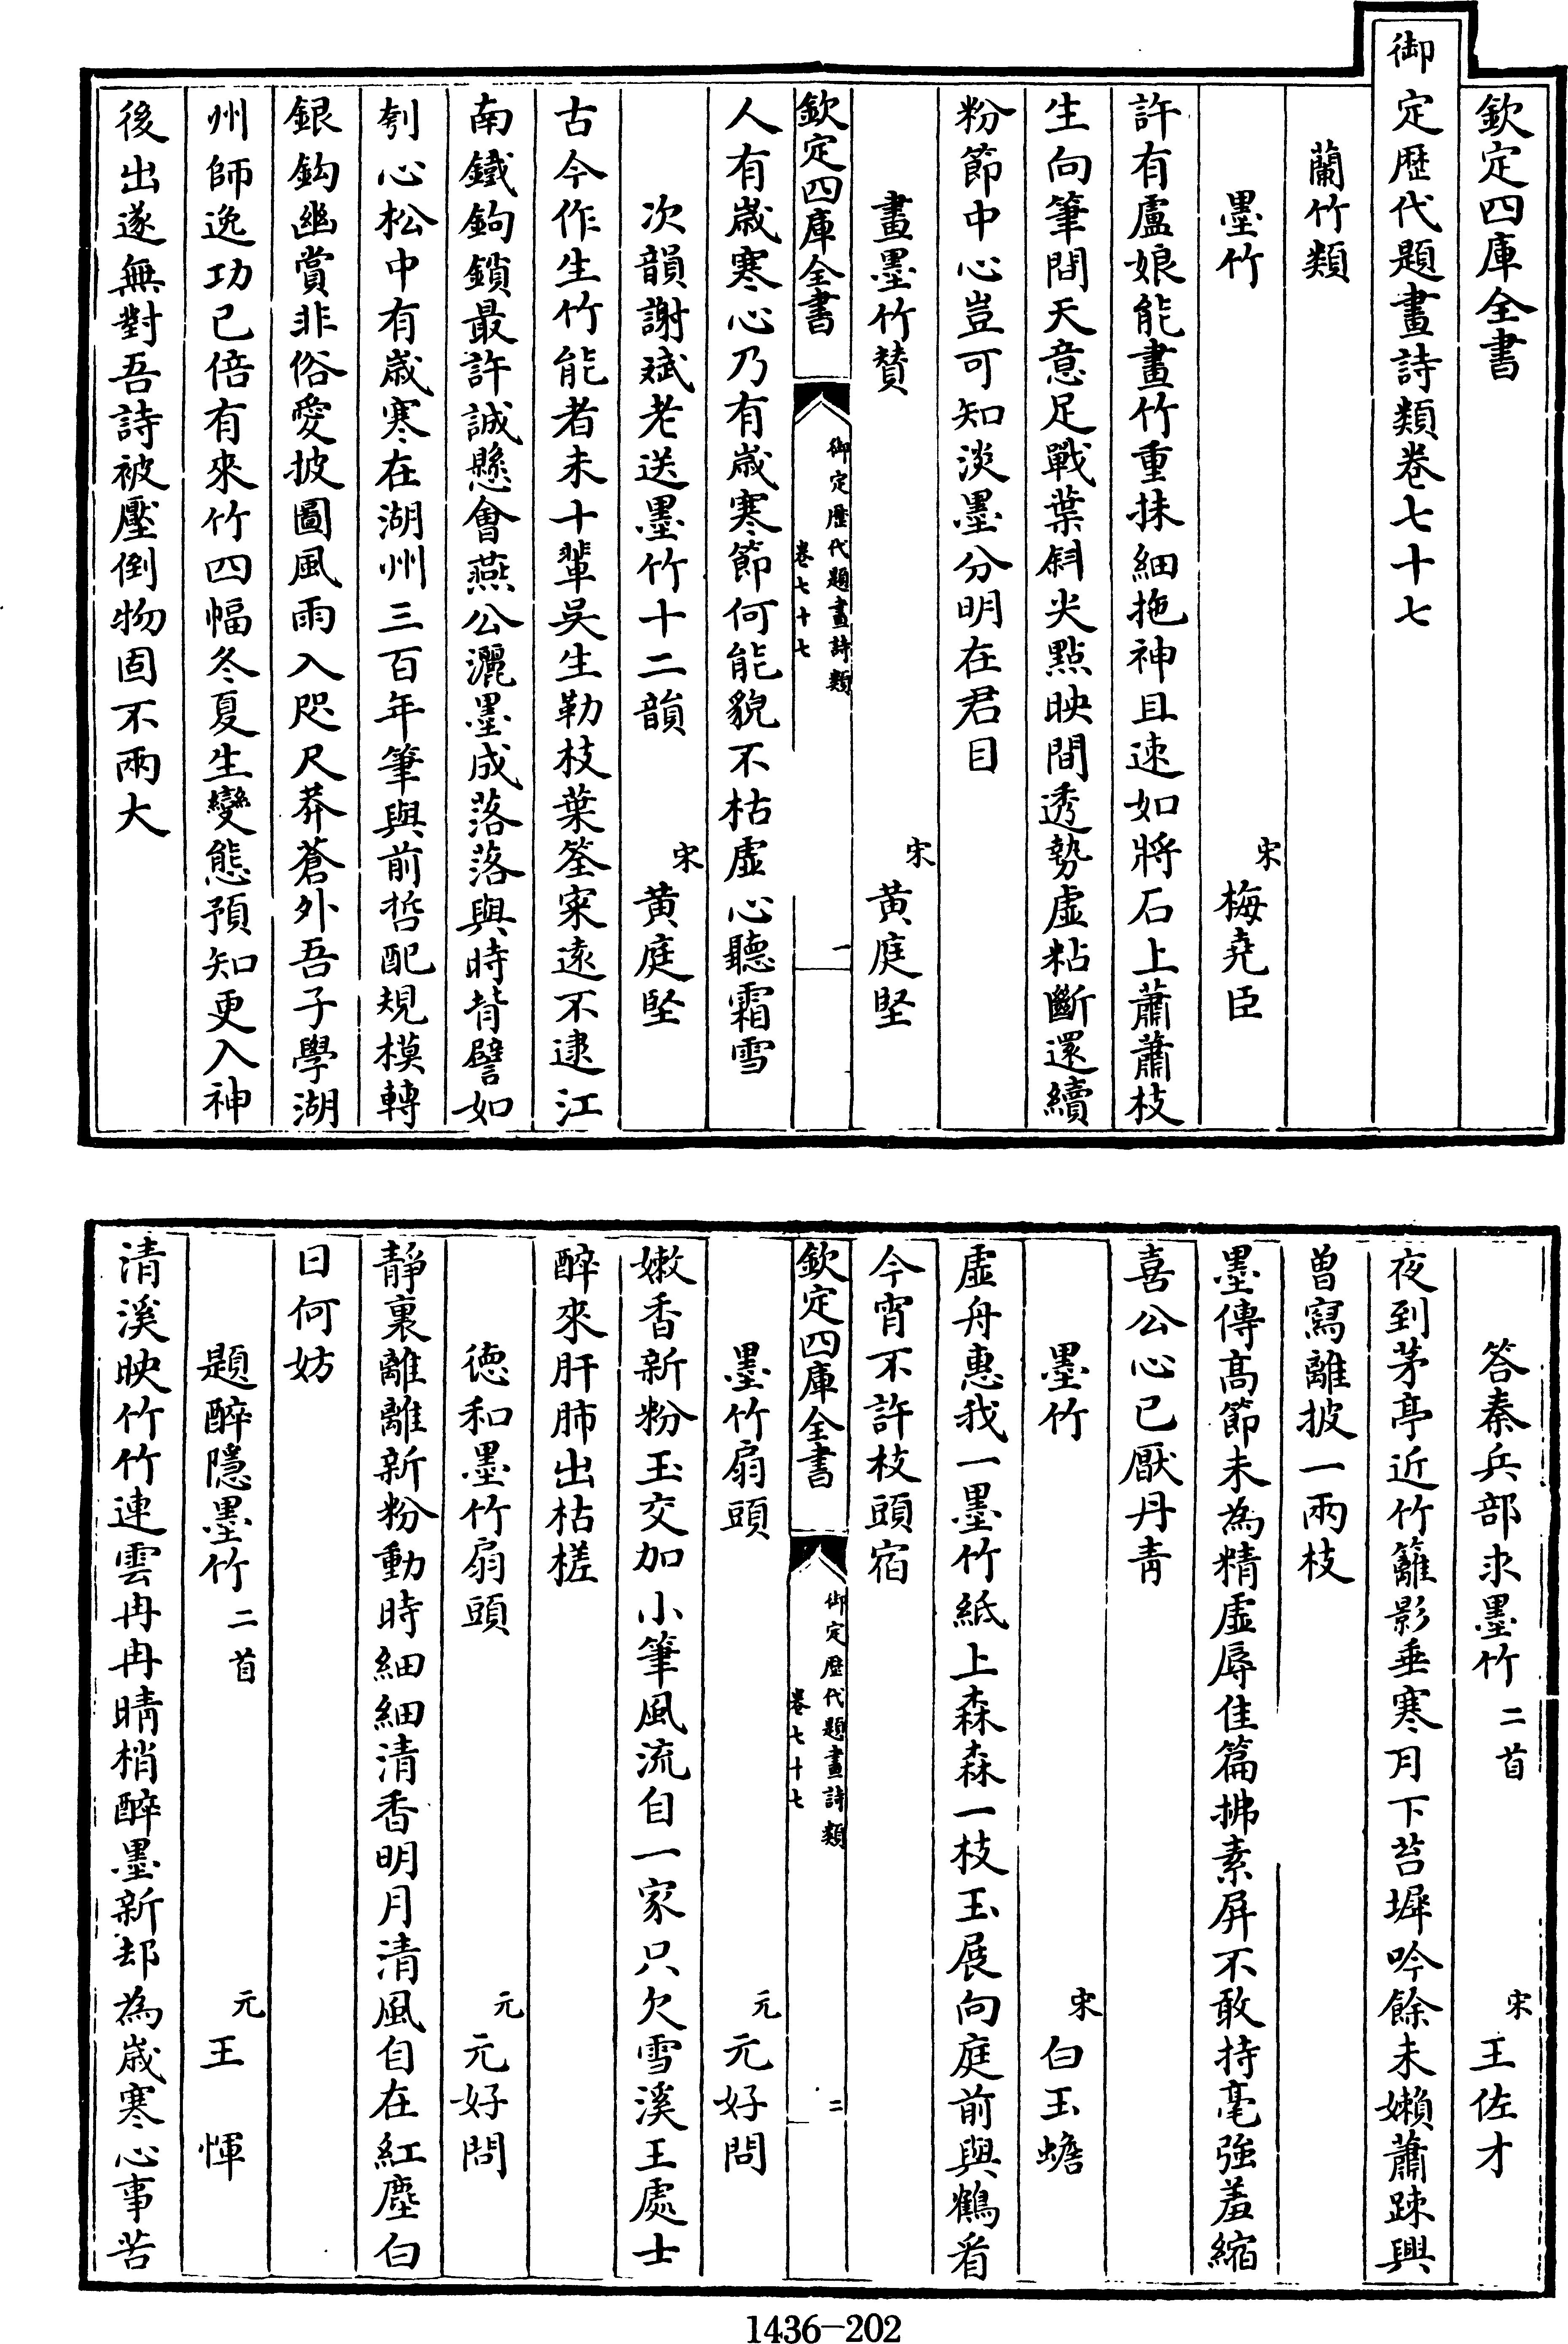 欽定四庫全書
御定歴代題畫詩類卷七十七
蘭竹類
墨竹　宋梅堯臣
許有盧娘能畫竹重抹細拖神且速如將石上蕭蕭枝
生向筆間天意足戰葉斜尖點映間透勢虛粘斷還續
粉節中心豈可知淡墨分明在君目
畫墨竹賛　宋黄庭堅
欽定四庫全書　御定歴代題畫詩類卷七十七　一
人有歳寒心乃有歳寒節何能貌不枯虛心聽霜雪
次韻謝斌老送墨竹十二韻　宋黄庭堅
古今作生竹能者未十輩吳生勒枝葉筌寀遠不逮江
南鐵鉤鎖最許誠懸會燕公灑墨成落落與時背譬如
刳心松中有歳寒在湖州三百年筆與前哲配規模轉
銀鈎幽賞非俗愛披圖風雨入咫尺莽蒼外吾子學湖
州師逸功已倍有來竹四幅冬夏生變態預知更入神
後出遂無對吾詩被壓倒物固不兩大
答秦兵部求墨竹二首　宋王佐才
夜到茅亭近竹籬影垂寒月下苔墀吟餘未嬾蕭踈興
曽寫離披一兩枝
墨傳髙節未為精虛辱佳篇拂素屏不敢持毫強羞縮
喜公心已厭丹青
墨竹　宋白玉蟾
虛舟惠我一墨竹紙上森森一枝玉展向庭前與鶴看
今宵不許枝頭宿
欽定四庫全書　御定歴代題畫詩類卷七十七　二
墨竹扇頭　元元好問
嫩香新粉玉交加小筆風流自一家只欠雪溪王處士
醉來肝肺出枯槎
徳和墨竹扇頭　元元好問
靜裏離離新粉動時細細清香明月清風自在紅塵白
日何妨
題醉隱墨竹二首　元王惲
清溪映竹竹連雲冉冉晴梢醉墨新却為歳寒心事苦
1436-202